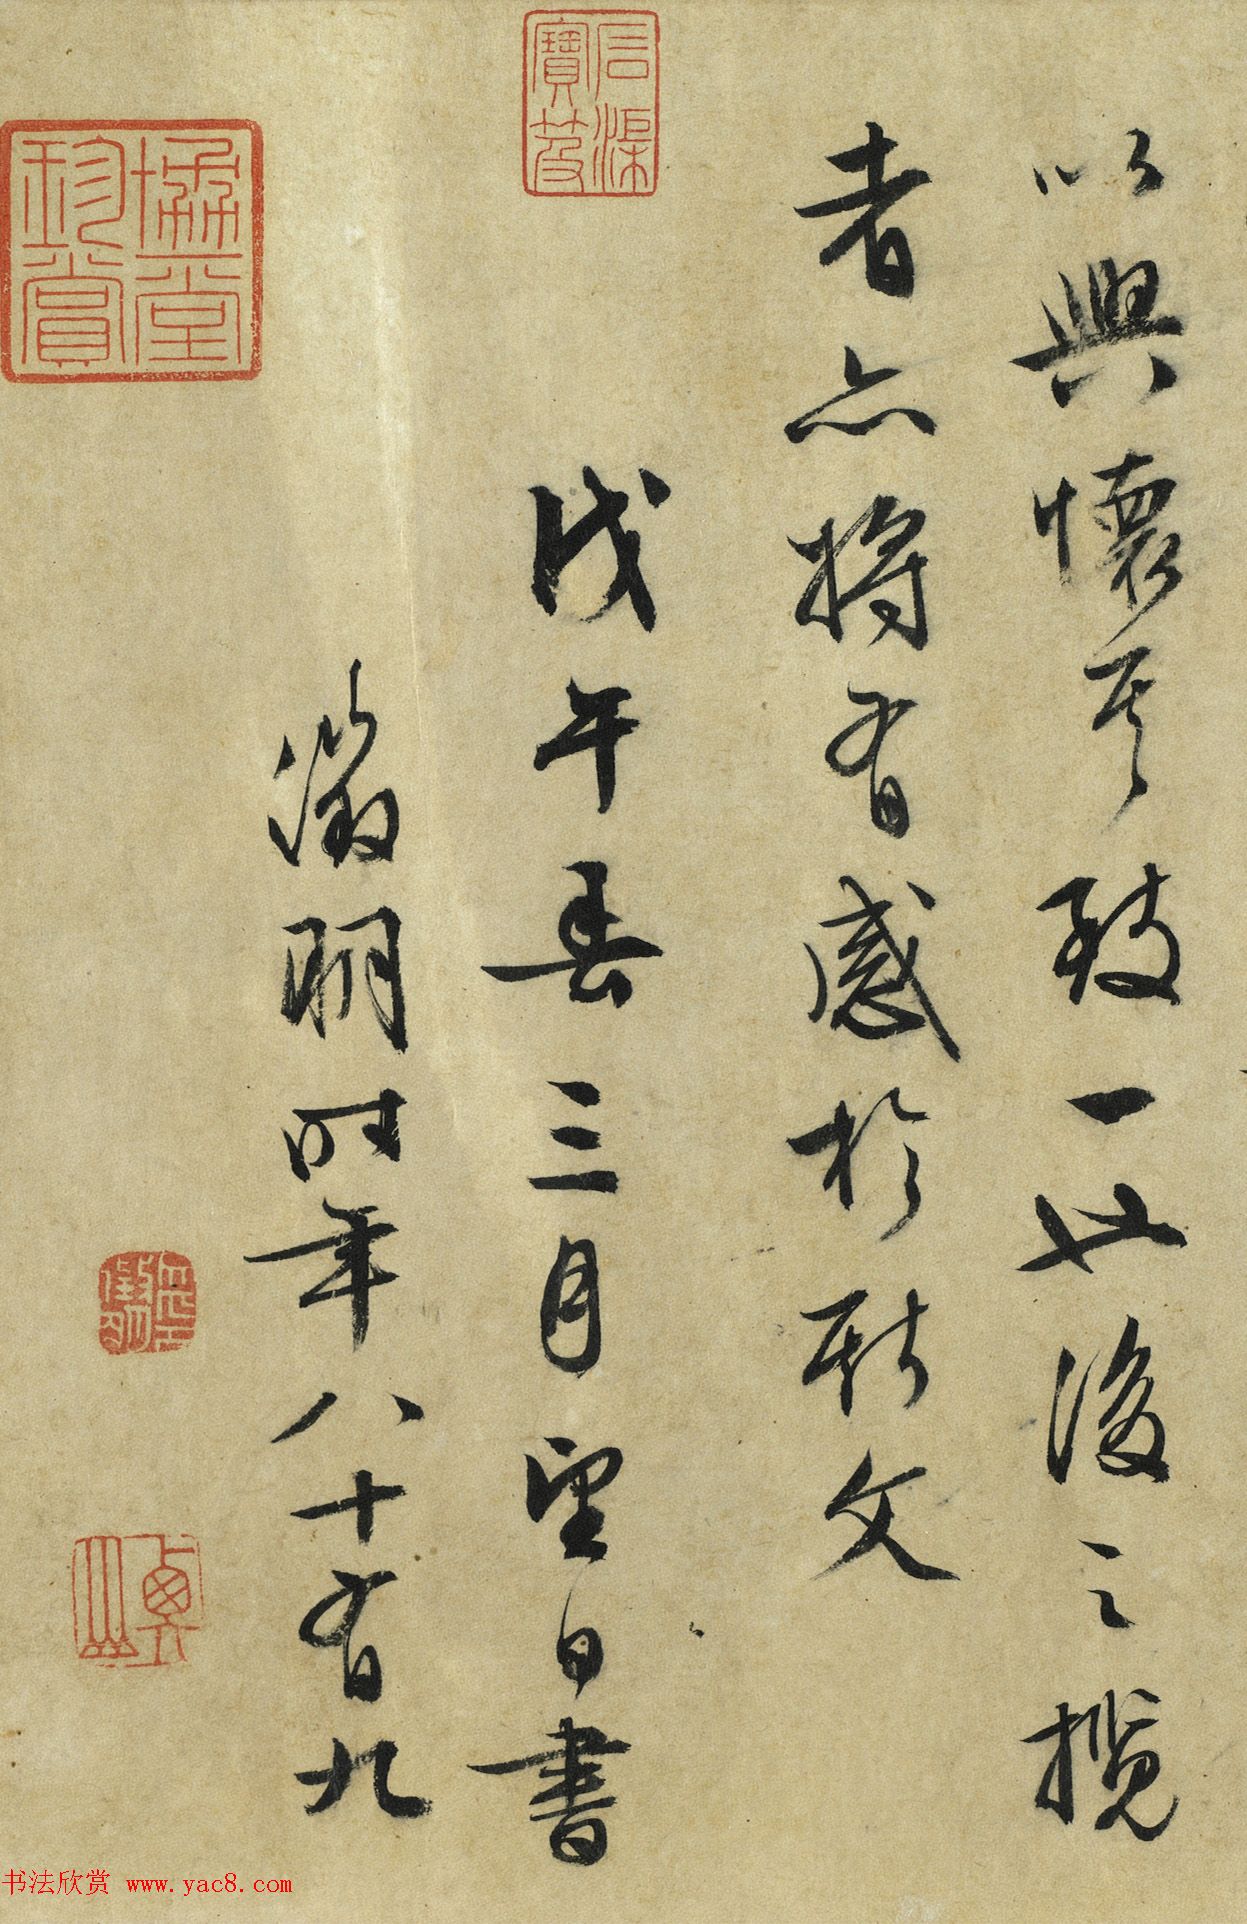 以興懷其致一也後之攬
者亦將有感於斯文
戊午春三月望日書
徵明時年八十有九
石渠寶笈
協堂珍賞
书法欣赏 www.yac8.com